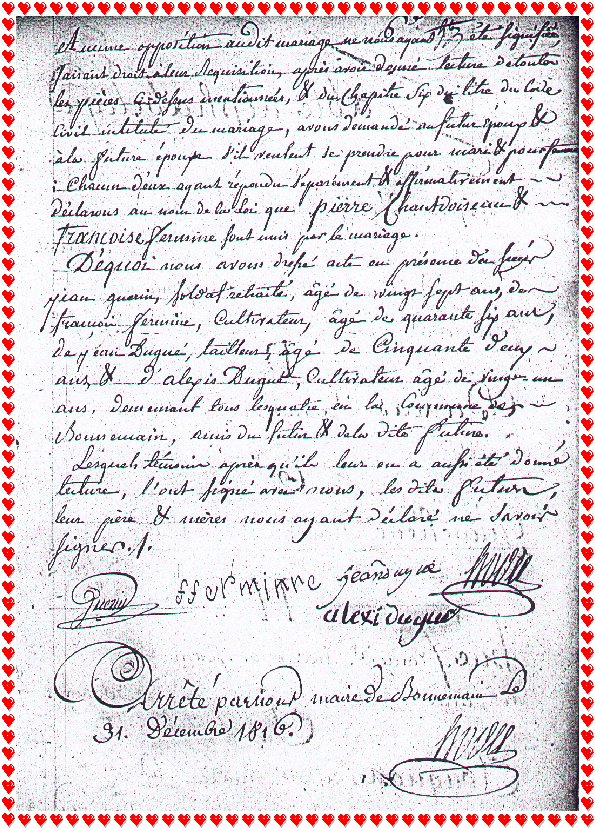 Aucune opposition audit mariage ne nous ayant été signifiée,
faisant droit à leur réquisition, après avoir donné lecture de toutes
les pièces ci-dessus mentionnées, & du Chapitre Six du titre du Code
Civil intitulé Du mariage, avons demandé au futur époux &
à la future épouse s'il veulent se prendre pour mari & pour femme
: Chacun d'eux ayant répondu séparement & affirmativement
déclarons au nom de la loi que pierre Chantdoiseau &
françoise fermine sont unis par le mariage.
De quoi nous avons dressé acte en présence des sieurs
jean guerin, soldat retraité, âgé de vingt sept ans, de
françois fermine, Cultivateur, âgé de quarante six ans,
de jean Dugué, tailleur, âgé de Cinquante deux
ans, & d'alexis Dugué, Cultivateur âgé de vingt un
ans, demeurant tous les quatre en la Commune de
Bonnemain, amis du futur & de la dite future.
Lesquels témoins après qu'il leur en a aussi été donné
lecture, l'ont signé avec nous, les dits futurs,
leur père & mères nous ayant déclaré ne savoir
signer ./.
Guerin fferminne jeandugué
alexi dugué
Arrêté par nous maire de Bonnemain le
31. Décembre 1816.